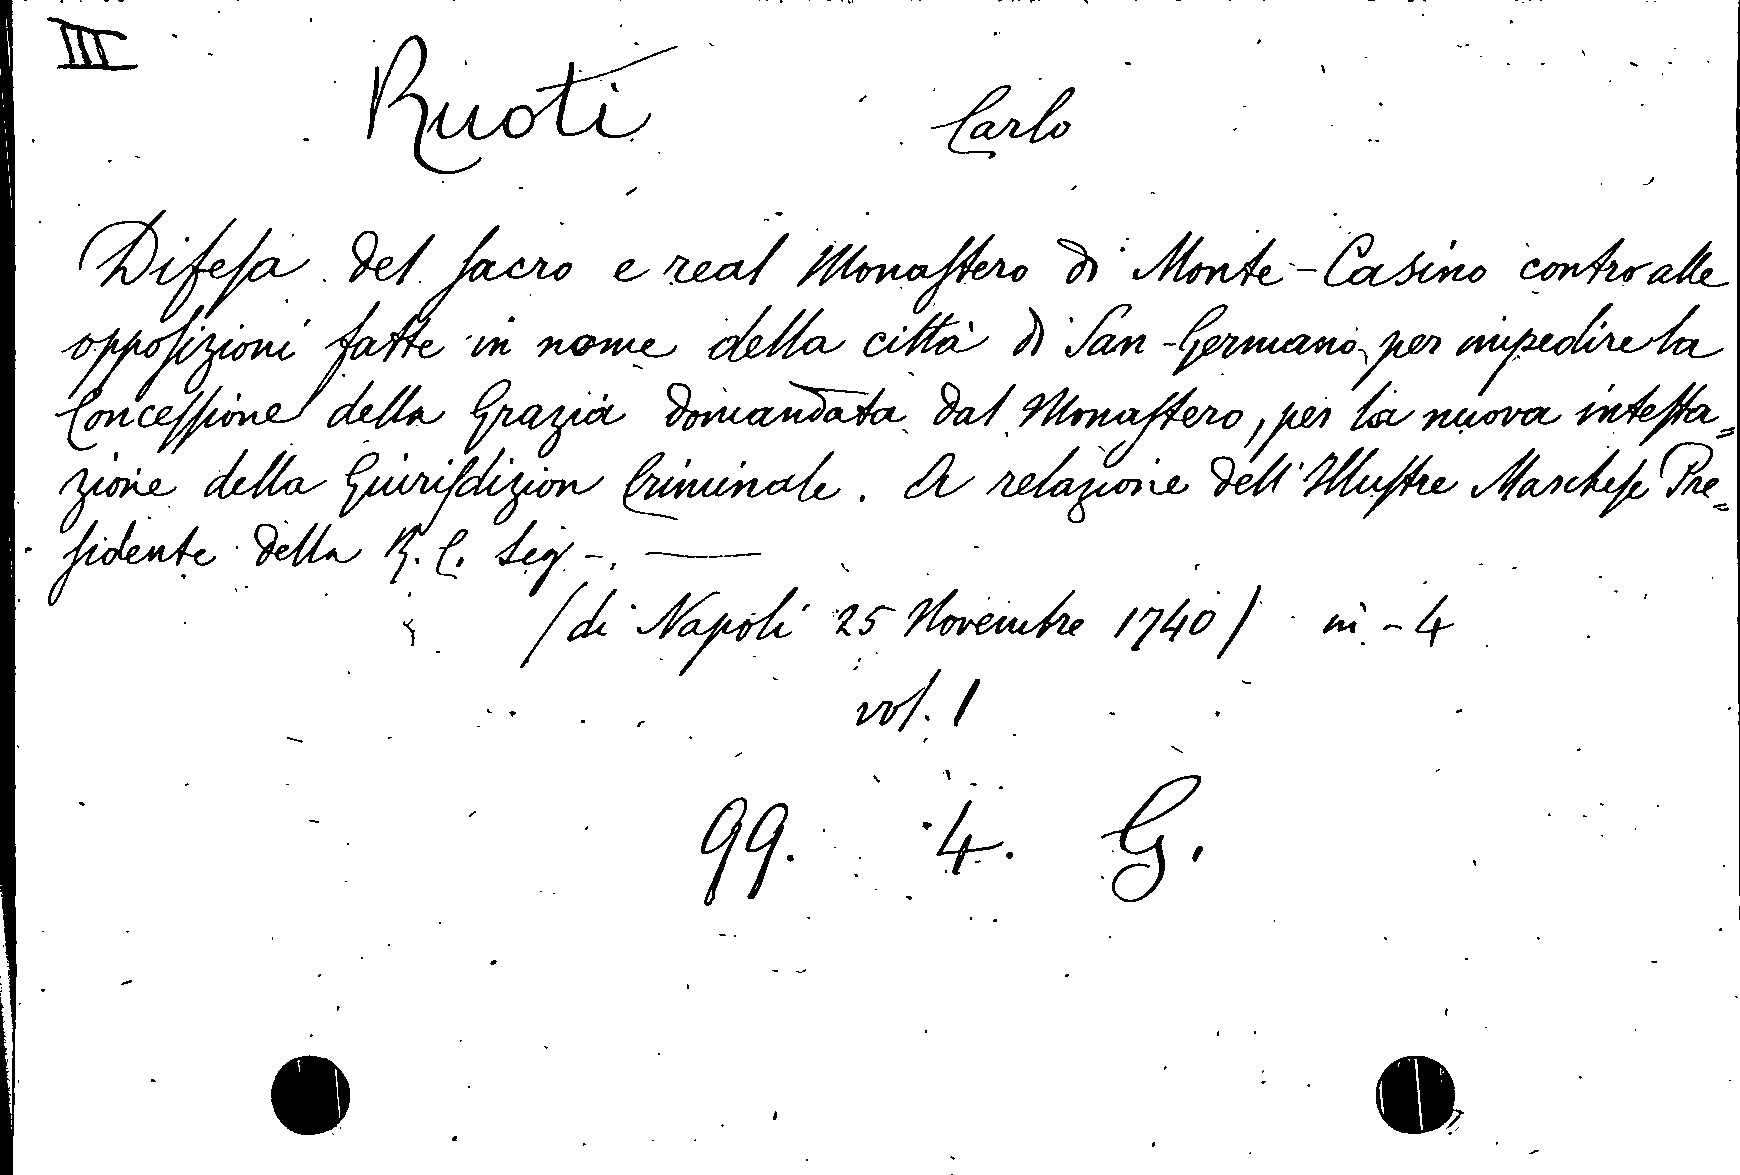 III
Ruoti Carlo
Difesa del sacro e real Monastero di Monte-Casino contro alle
opposizioni fatte in nome della città di San-Germano, per impedire la
Concessione della Grazia domandata dal Monastero, per la nuova intesta=
zione della Giurisdizion Criminale. A relazione dell'Illustre Marchese Pre=
sidente della R. C. Sig -. —
(di Napoli 25 Novembre 1740) in-4
vol. 1
99. 4. G.